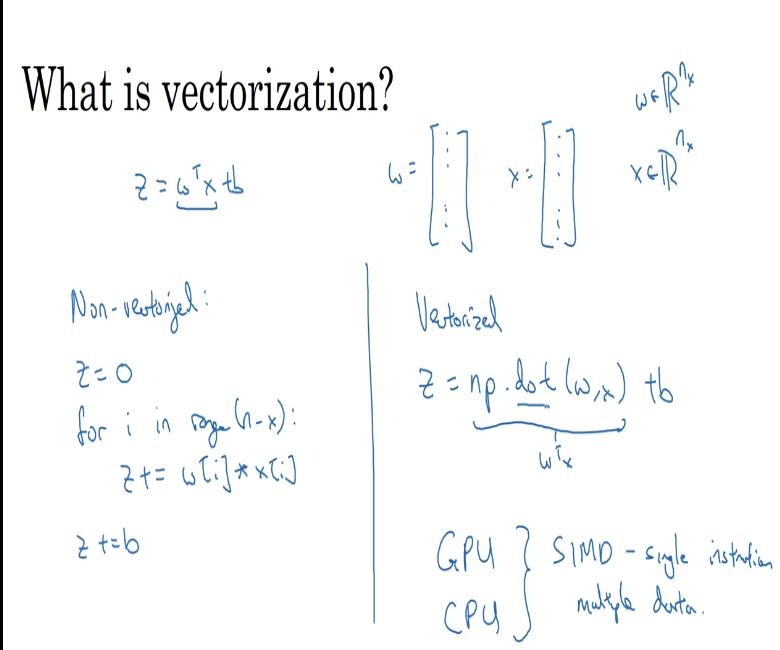 What is vectorization?
z = wᵀx + b
w = [⋮ ⋮] x = [⋮ ⋮]
w ∈ ℝⁿˣ
x ∈ ℝⁿˣ
Non-vectorized:
z = 0
for i in range(n-x):
z += w[i] * x[i]
z += b
Vectorized
z = np.dot(w,x) + b
wᵀx
GPU } SIMD - single instruction
CPU } multiple data.